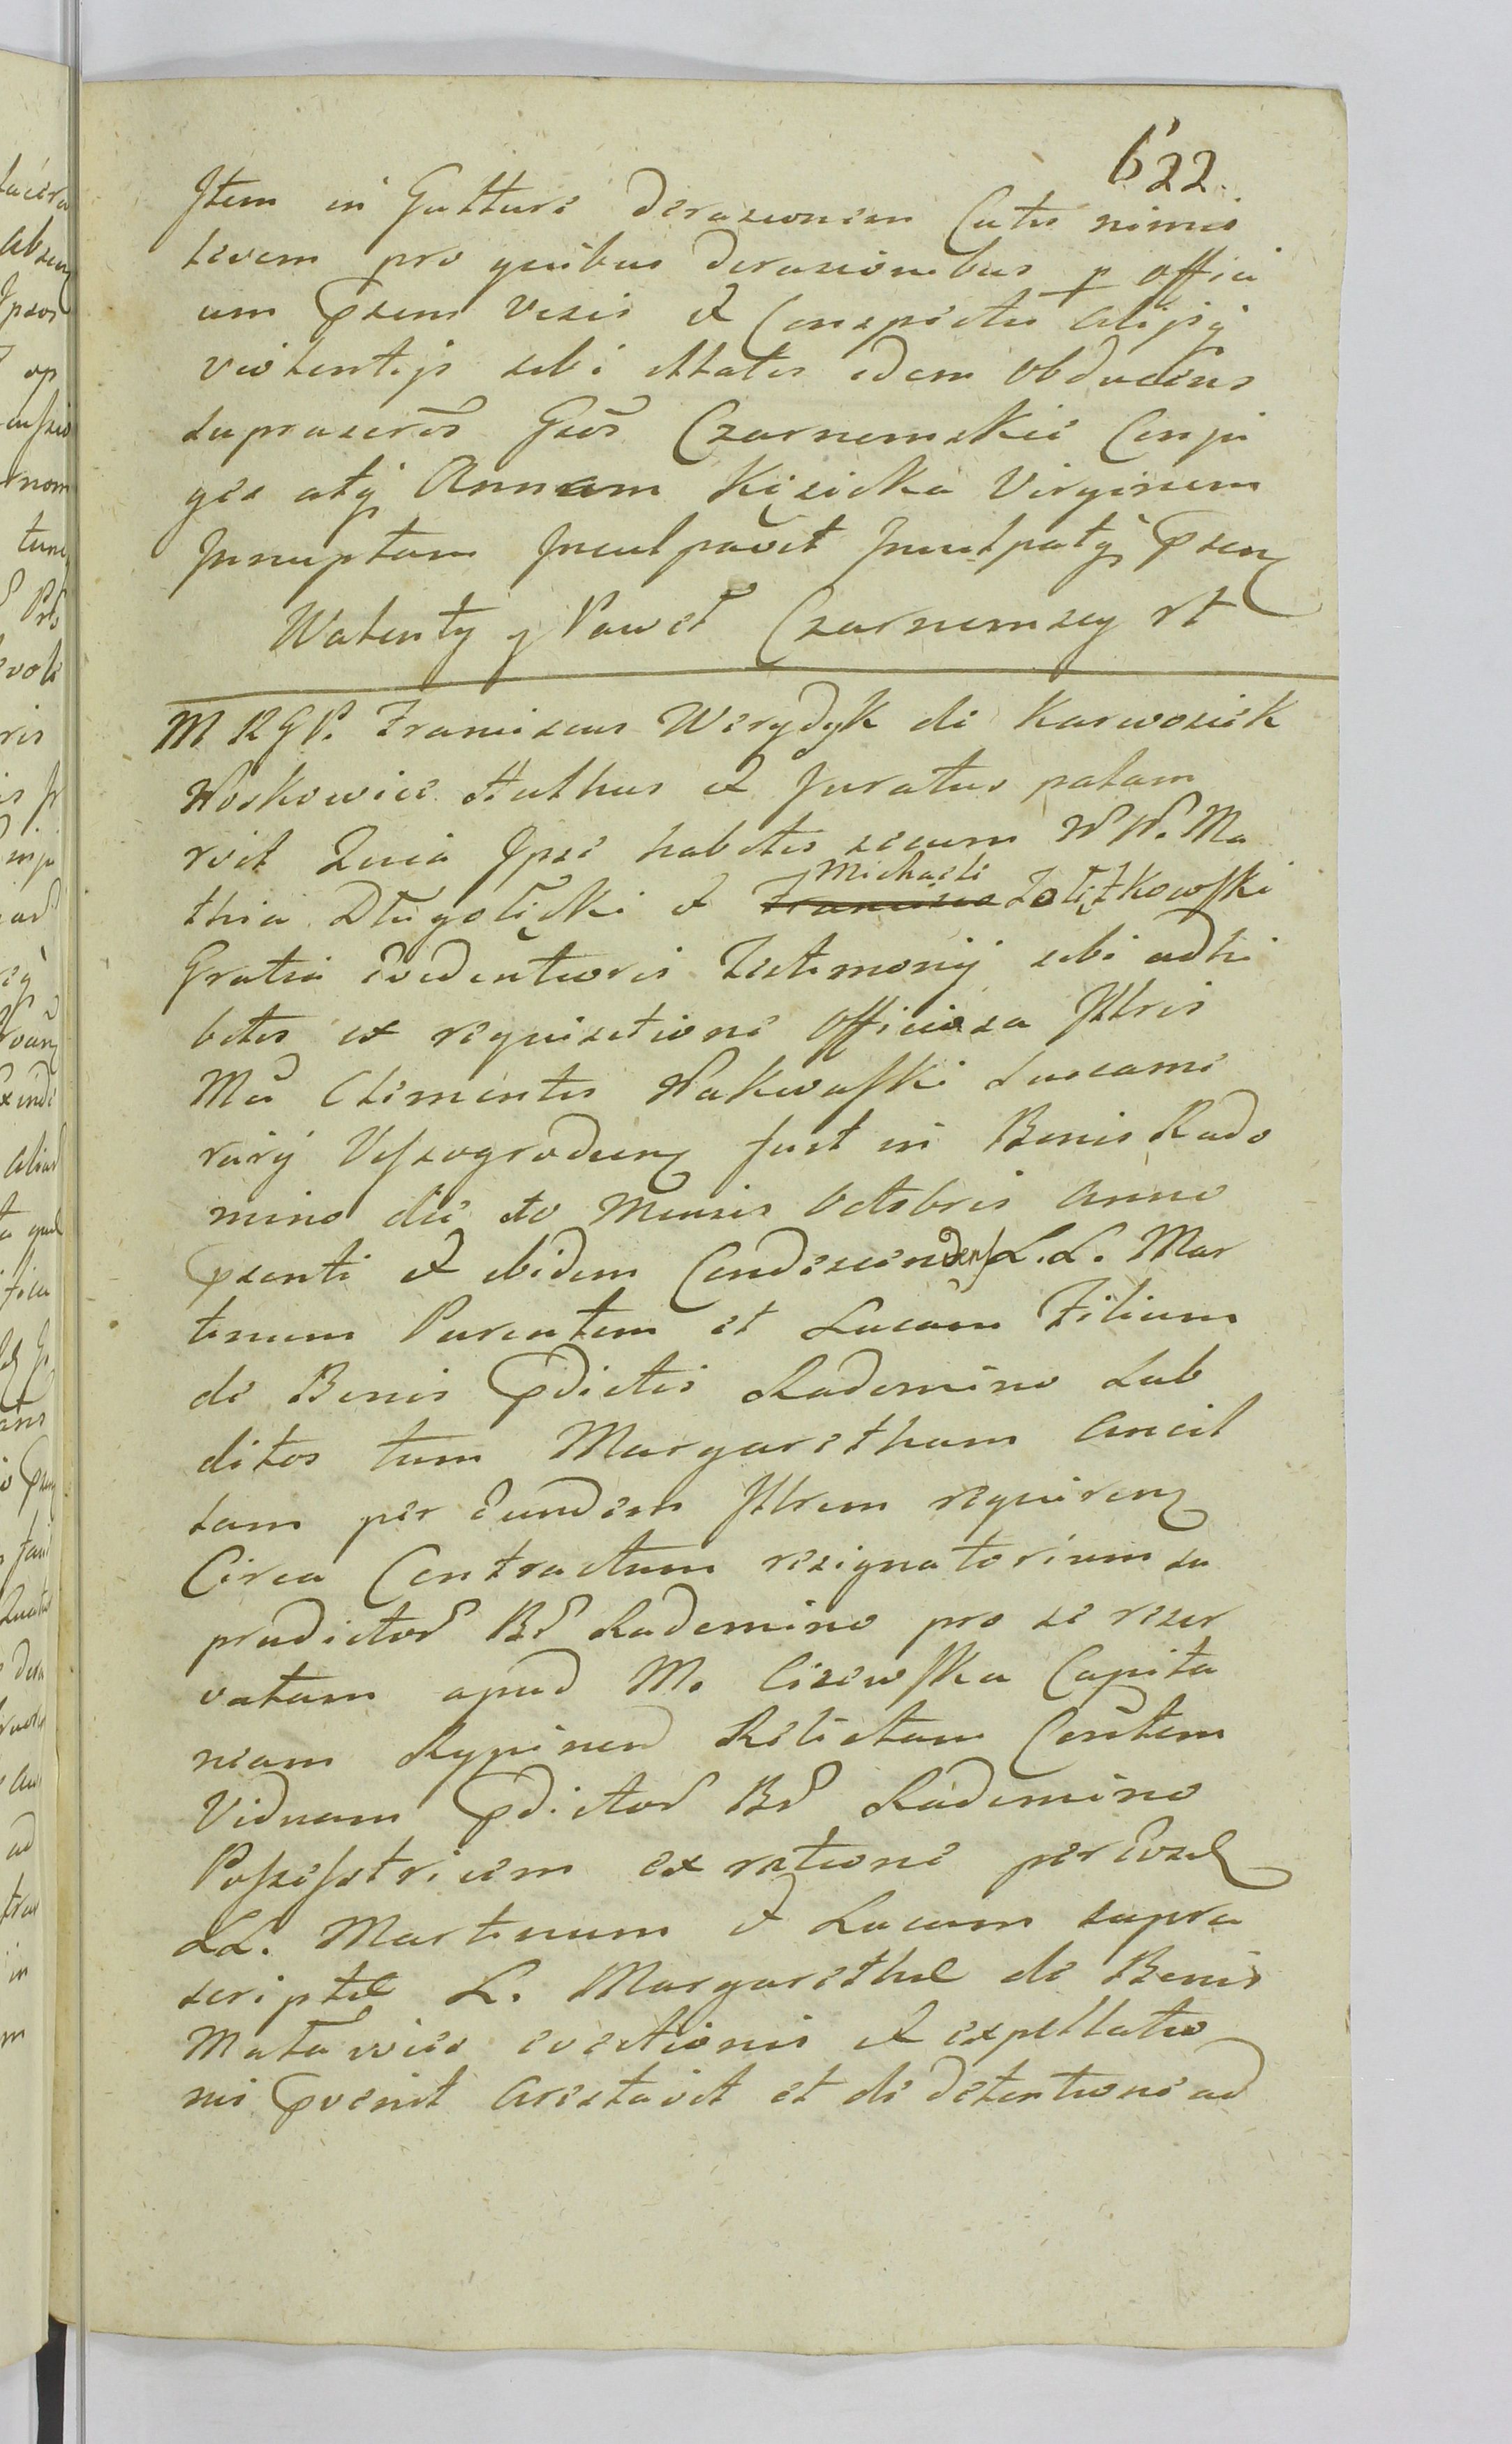 622.
Item in Gutture derasionem Cutis nimis
levem pro quibus derasionibus p offici
um Psens visis et Conspectis alijsq
violentijs sibi illatis idem Obducens
suprascros Gsos Czarnomskie Conju
ges atq Annam Kęsicka Virginem
Innuptam Inculpavit Inculpatq Psen
Walenty y Paweł Czarnomscy rt
M RGP. Franciscus Werydyk de Karwosiek
Noskowice Authus et Juratus palam
rvit Quia Ipse habitis secum NN. Ma
thia Długołęcki et Michaeli Francisco Zolętkowski
Gratia Evidentioris Testimonij sibi adhi
bitis ex requisitione Officiosa Illris
Mci Clementis Nakwaski Succame
rarij Vyszogrodien fuit in Bonis Rado
mino die 10 Mensis Octobris Anno
Psenti et ibidem Condescenden L.L. Mar
tinum Parentem et Lucam Filium
de Bonis Pdictis Radomino Sub
ditos tum Margaretham Ancil
lam per Eundem Illrem requiren
Circa Contractum resignatorium su
pradictor Br Radomino pro se reser
vatam apud M. Cissowska Capita
neam Rypinen Relictam Consortem
Viduam Pdictor Br Radomino
Possessotricem ex ratione per Eosd
LL. Martinum et Lucam supra
scriptæ L. Margarethæ de Bonis
Mała wies evectionis et expellatio
nis Pvenit Arestavit et de detentione ad